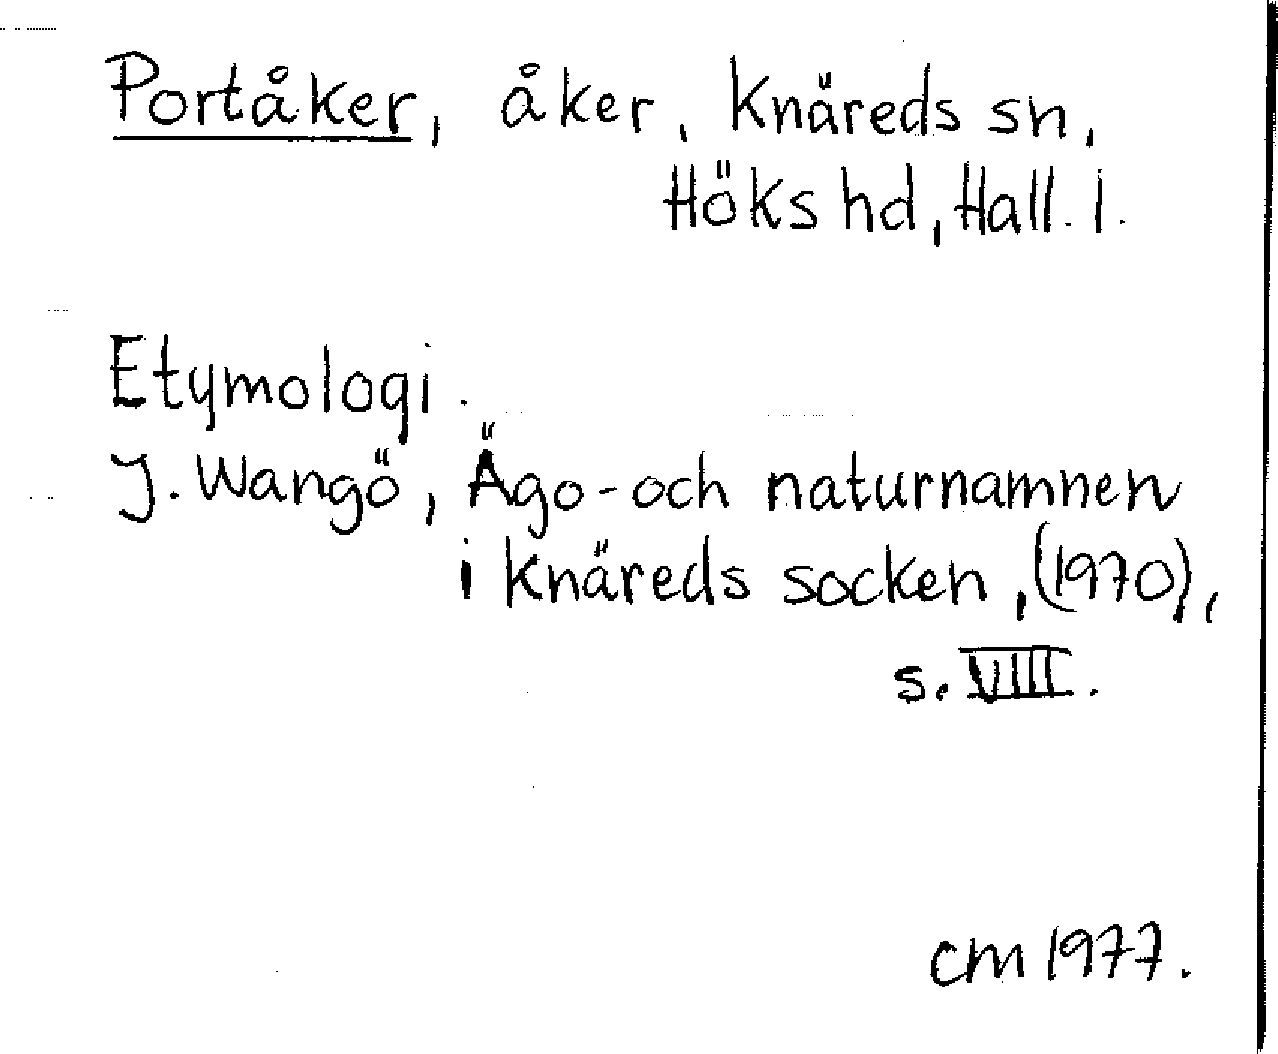 Portåker, åker, Knäreds sn,
Höks hd, Hall. l.
Etymologi.
J. Wangö, Ägo- och naturnamnen
i Knäreds socken, (1970),
s. VIII.
cm 1977.